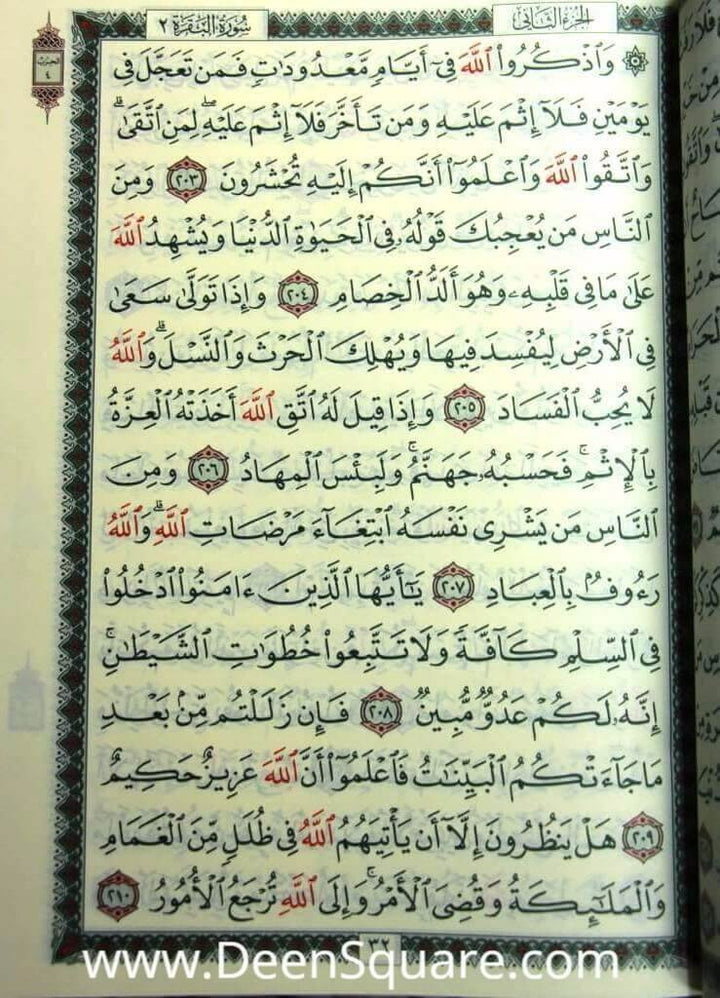 سُورَةُ البَقَرَةِ ٢
الجزء الثاني
الحزب ٤
۞ وَٱذْكُرُوا۟ ٱللَّهَ فِىٓ أَيَّامٍ مَّعْدُودَٰتٍ فَمَن تَعَجَّلَ فِى
يَوْمَيْنِ فَلَآ إِثْمَ عَلَيْهِ وَمَن تَأَخَّرَ فَلَآ إِثْمَ عَلَيْهِ ۖ لِمَنِ ٱتَّقَىٰ ۗ
وَٱتَّقُوا۟ ٱللَّهَ وَٱعْلَمُوٓا۟ أَنَّكُمْ إِلَيْهِ تُحْشَرُونَ ٢٠٣ وَمِنَ
ٱلنَّاسِ مَن يُعْجِبُكَ قَوْلُهُۥ فِى ٱلْحَيَوٰةِ ٱلدُّنْيَا وَيُشْهِدُ ٱللَّهَ
عَلَىٰ مَا فِى قَلْبِهِۦ وَهُوَ أَلَدُّ ٱلْخِصَامِ ٢٠٤ وَإِذَا تَوَلَّىٰ سَعَىٰ
فِى ٱلْأَرْضِ لِيُفْسِدَ فِيهَا وَيُهْلِكَ ٱلْحَرْثَ وَٱلنَّسْلَ ۗ وَٱللَّهُ
لَا يُحِبُّ ٱلْفَسَادَ ٢٠٥ وَإِذَا قِيلَ لَهُ ٱتَّقِ ٱللَّهَ أَخَذَتْهُ ٱلْعِزَّةُ
بِٱلْإِثْمِ ۚ فَحَسْبُهُۥ جَهَنَّمُ ۚ وَلَبِئْسَ ٱلْمِهَادُ ٢٠٦ وَمِنَ
ٱلنَّاسِ مَن يَشْرِى نَفْسَهُ ٱبْتِغَآءَ مَرْضَاتِ ٱللَّهِ ۗ وَٱللَّهُ
رَءُوفٌۢ بِٱلْعِبَادِ ٢٠٧ يَٰٓأَيُّهَا ٱلَّذِينَ ءَامَنُوا۟ ٱدْخُلُوا۟
فِى ٱلسِّلْمِ كَآفَّةً وَلَا تَتَّبِعُوا۟ خُطُوَٰتِ ٱلشَّيْطَٰنِ ۚ
إِنَّهُۥ لَكُمْ عَدُوٌّ مُّبِينٌ ٢٠٨ فَإِن زَلَلْتُم مِّنۢ بَعْدِ
مَا جَآءَتْكُمُ ٱلْبَيِّنَٰتُ فَٱعْلَمُوٓا۟ أَنَّ ٱللَّهَ عَزِيزٌ حَكِيمٌ
٢٠٩ هَلْ يَنظُرُونَ إِلَّآ أَن يَأْتِيَهُمُ ٱللَّهُ فِى ظُلَلٍ مِّنَ ٱلْغَمَامِ
وَٱلْمَلَٰٓئِكَةُ وَقُضِىَ ٱلْأَمْرُ ۚ وَإِلَى ٱللَّهِ تُرْجَعُ ٱلْأُمُورُ ٢١٠
٣٢
www.DeenSquare.com